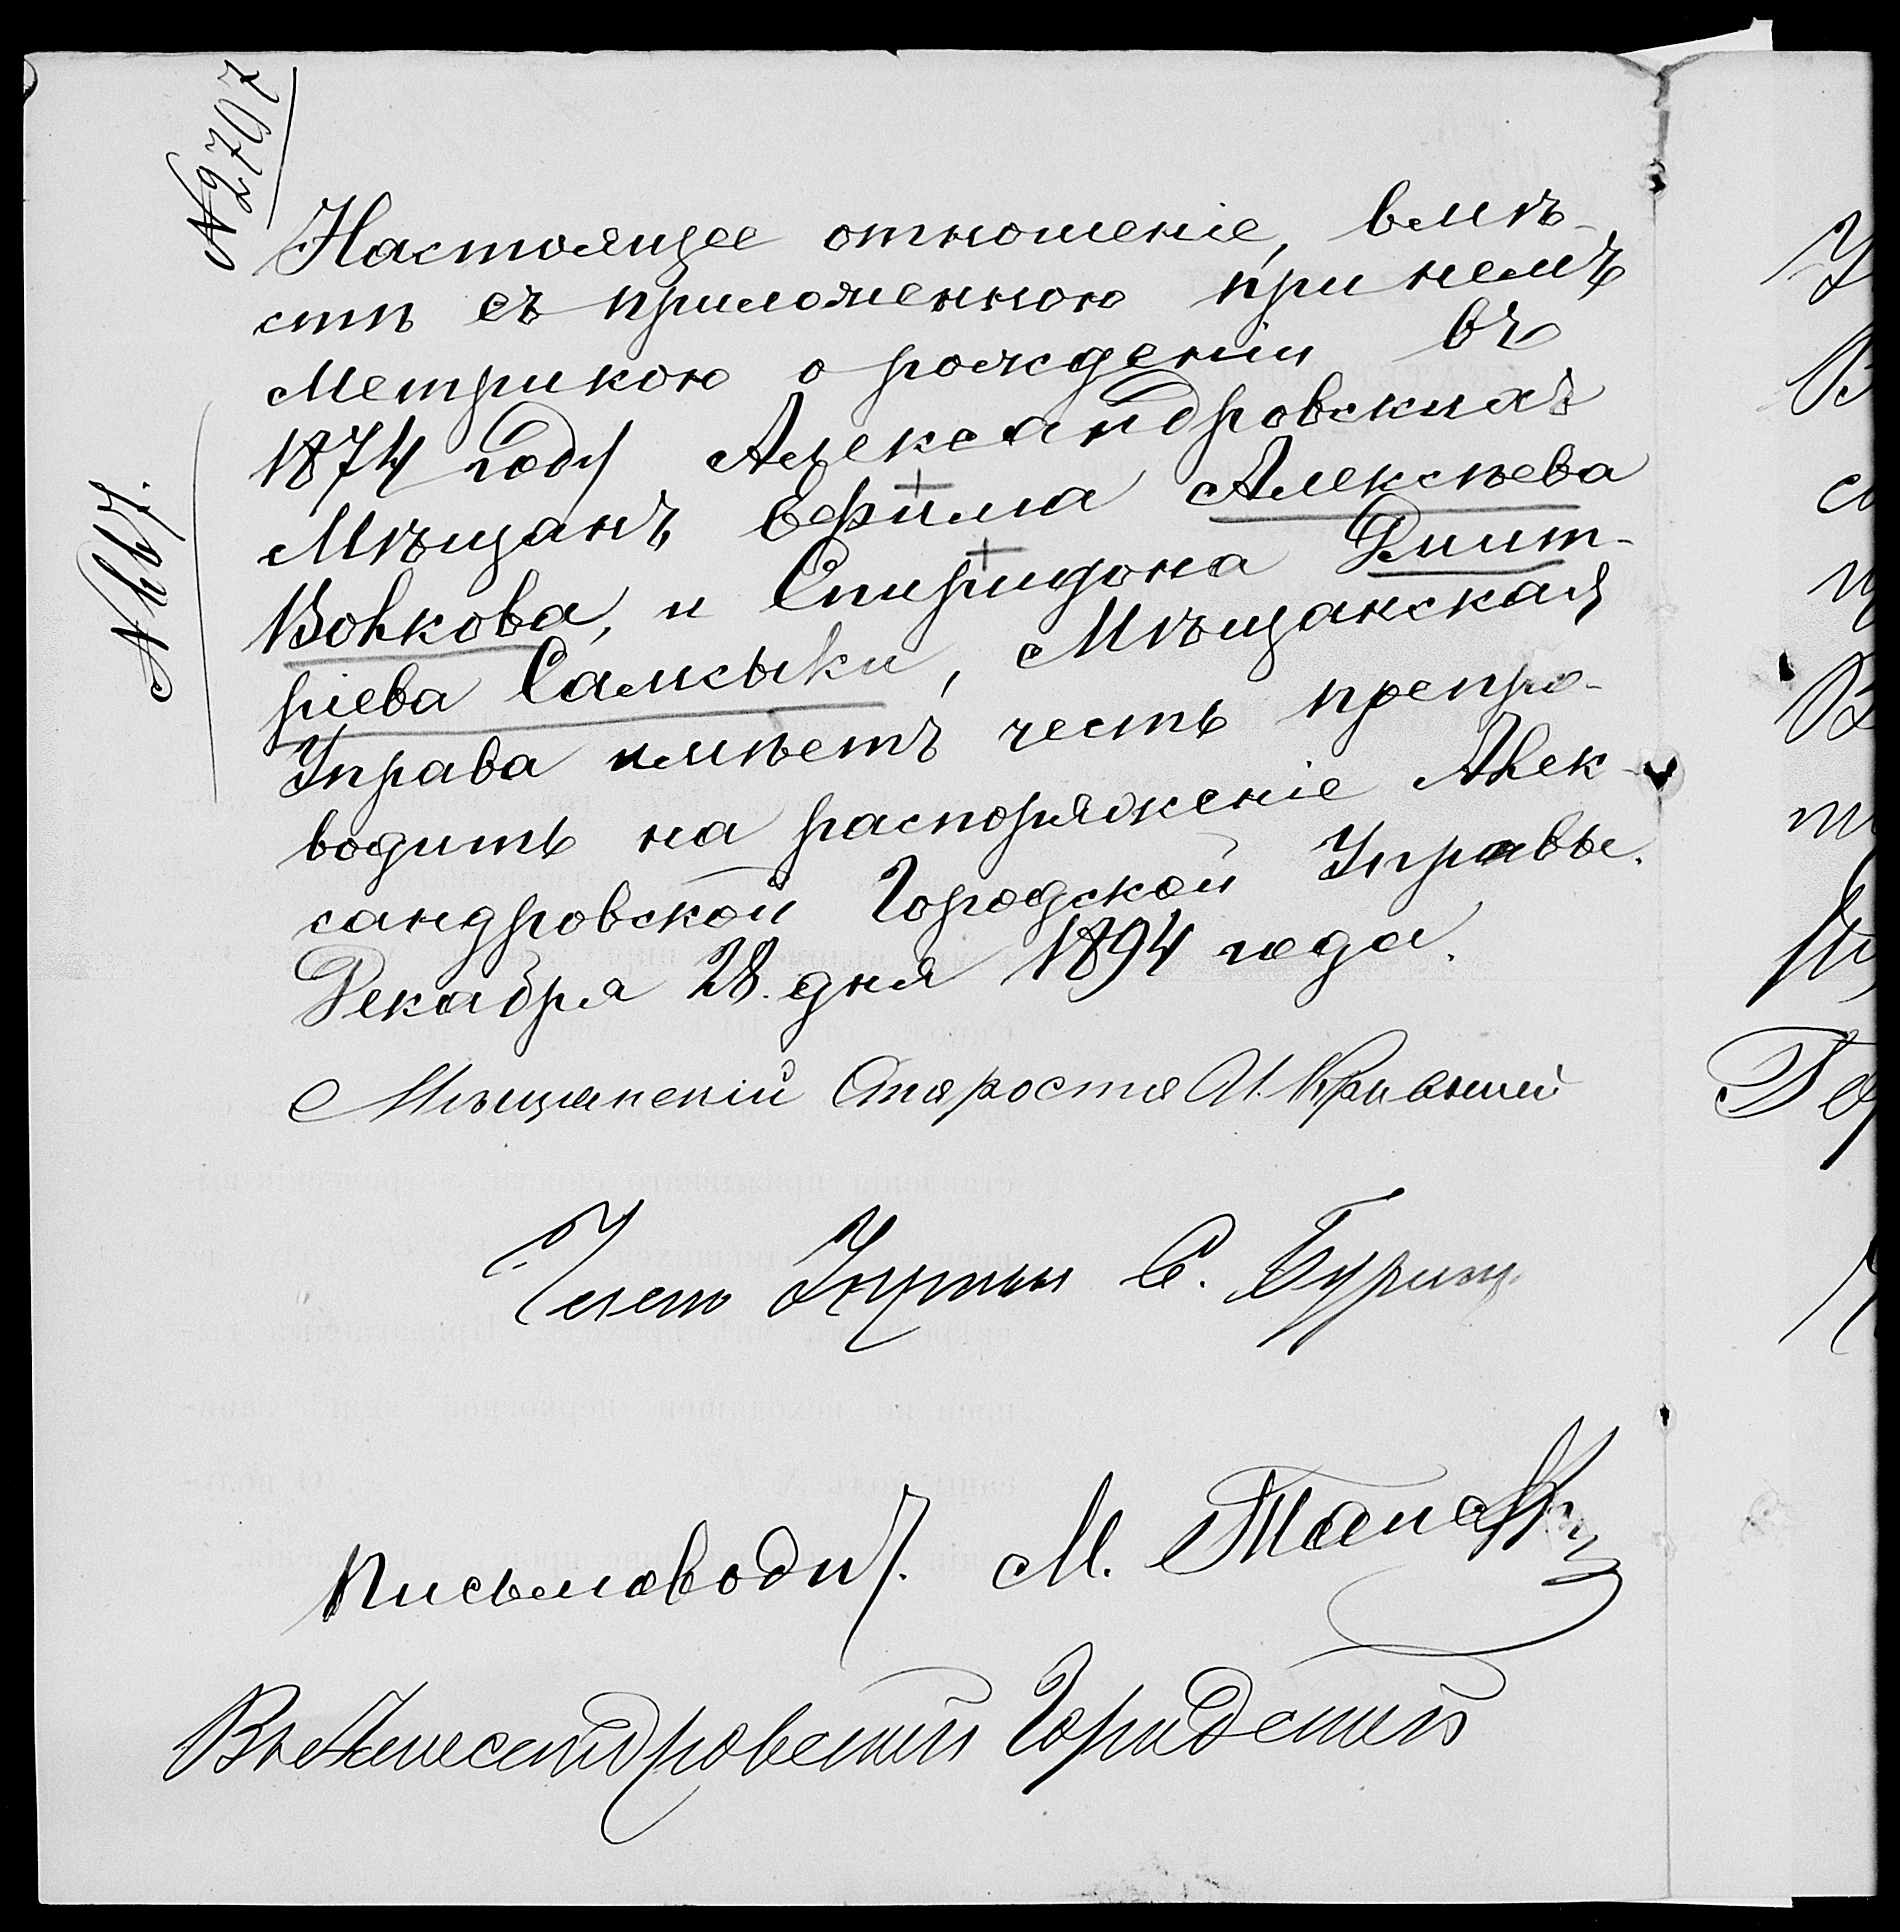 № 2707
Настоящее отношеніе, вмѣ-
стѣ съ приложенною при немъ
Метрикою о рожденіи въ
1874 году Александровскихъ
Мѣщанъ Ефима Алексѣева
Волкова, и Спиридона Дмит-
ріева Самсыки, Мѣщанская
Управа имѣетъ честь препро-
водить на распоряженіе Алек-
сандровской Городской Управы.
Декабря 28 дня 1894 года.
Мѣщанскій Староста И.
Членъ Управы С.
Письмоводит. М.
Въ Александровскую Городскую